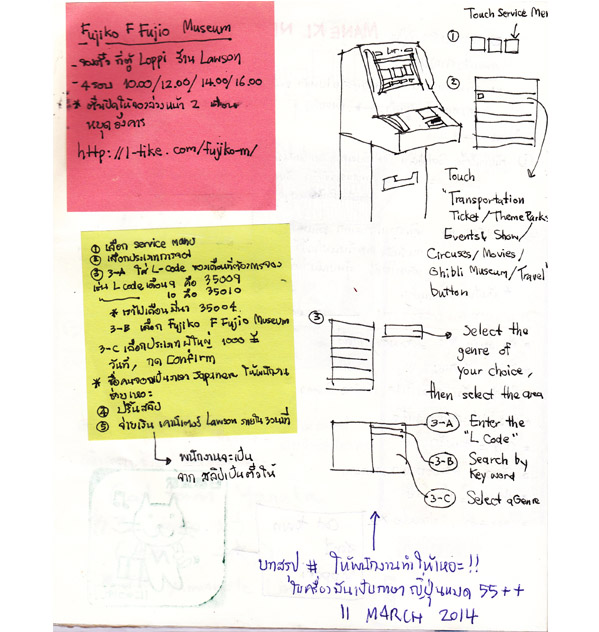 Fujiko F Fujio Museum
- จองตั๋ว ที่ตู้ Loppi ร้าน Lawson
- 4 รอบ 10.00/12.00/14.00/16.00
หยุดอังคาร
http://l-tike.com/fujiko-m/
① เลือก service menu
② เลือกประเภทการจอง
③ 3-A ใส่ L-code ของเดือนที่ต้องการจอง
เช่น L code เดือน 9 คือ 35009
10 คือ 35010
35004
3-B เลือก Fujiko F Fujio Museum
3-C เลือกประเภท ผู้ใหญ่ 1000 ¥
วันที่, กด Confirm
④ ปริ้นสลิป
⑤ จ่ายเงิน เคาน์เตอร์ Lawson ภายใน 30 นาที
พนักงานจะเปลี่ยน
จาก สลิปเป็นตั๋วให้
Touch Service Men
①
②
Touch
"Transportation
Ticket/Theme Parks
Events & Show/
Circuses/Movies/
Ghibli Museum/Travel"
button
③
Select the
genre of
your choice,
then select the area
3-A Enter the
"L Code"
3-B Search by
Key word
3-C Select a Genre
บทสรุป # ให้พนักงานทำให้เหอะ!!
ญี่ปุ่นหมด 55++
11 MARCH 2014